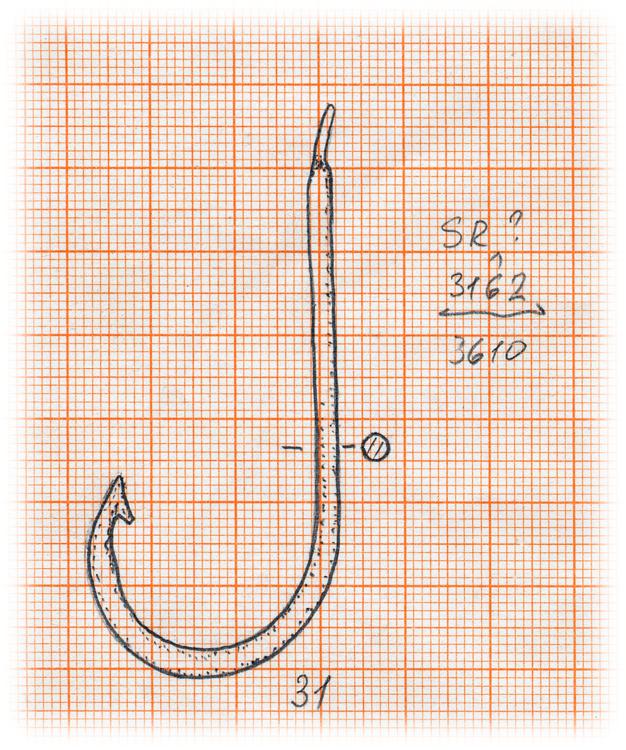 SR ?
3162
3610
31